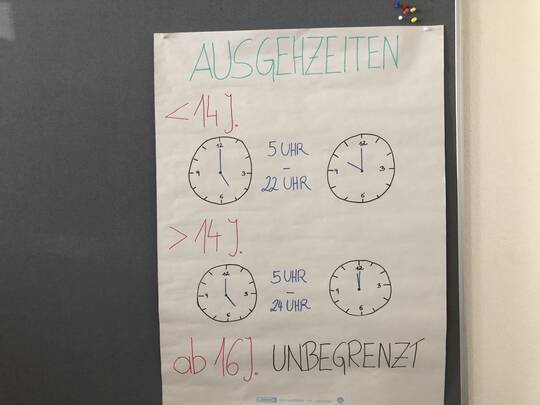 AUSGEHZEITEN
< 14 J.
12 3 6 9
5 UHR
–
22 UHR
12 3 6 9
> 14 J.
12 3 6 9
5 UHR
–
24 UHR
12 3 6 9
ab 16 J. UNBEGRENZT